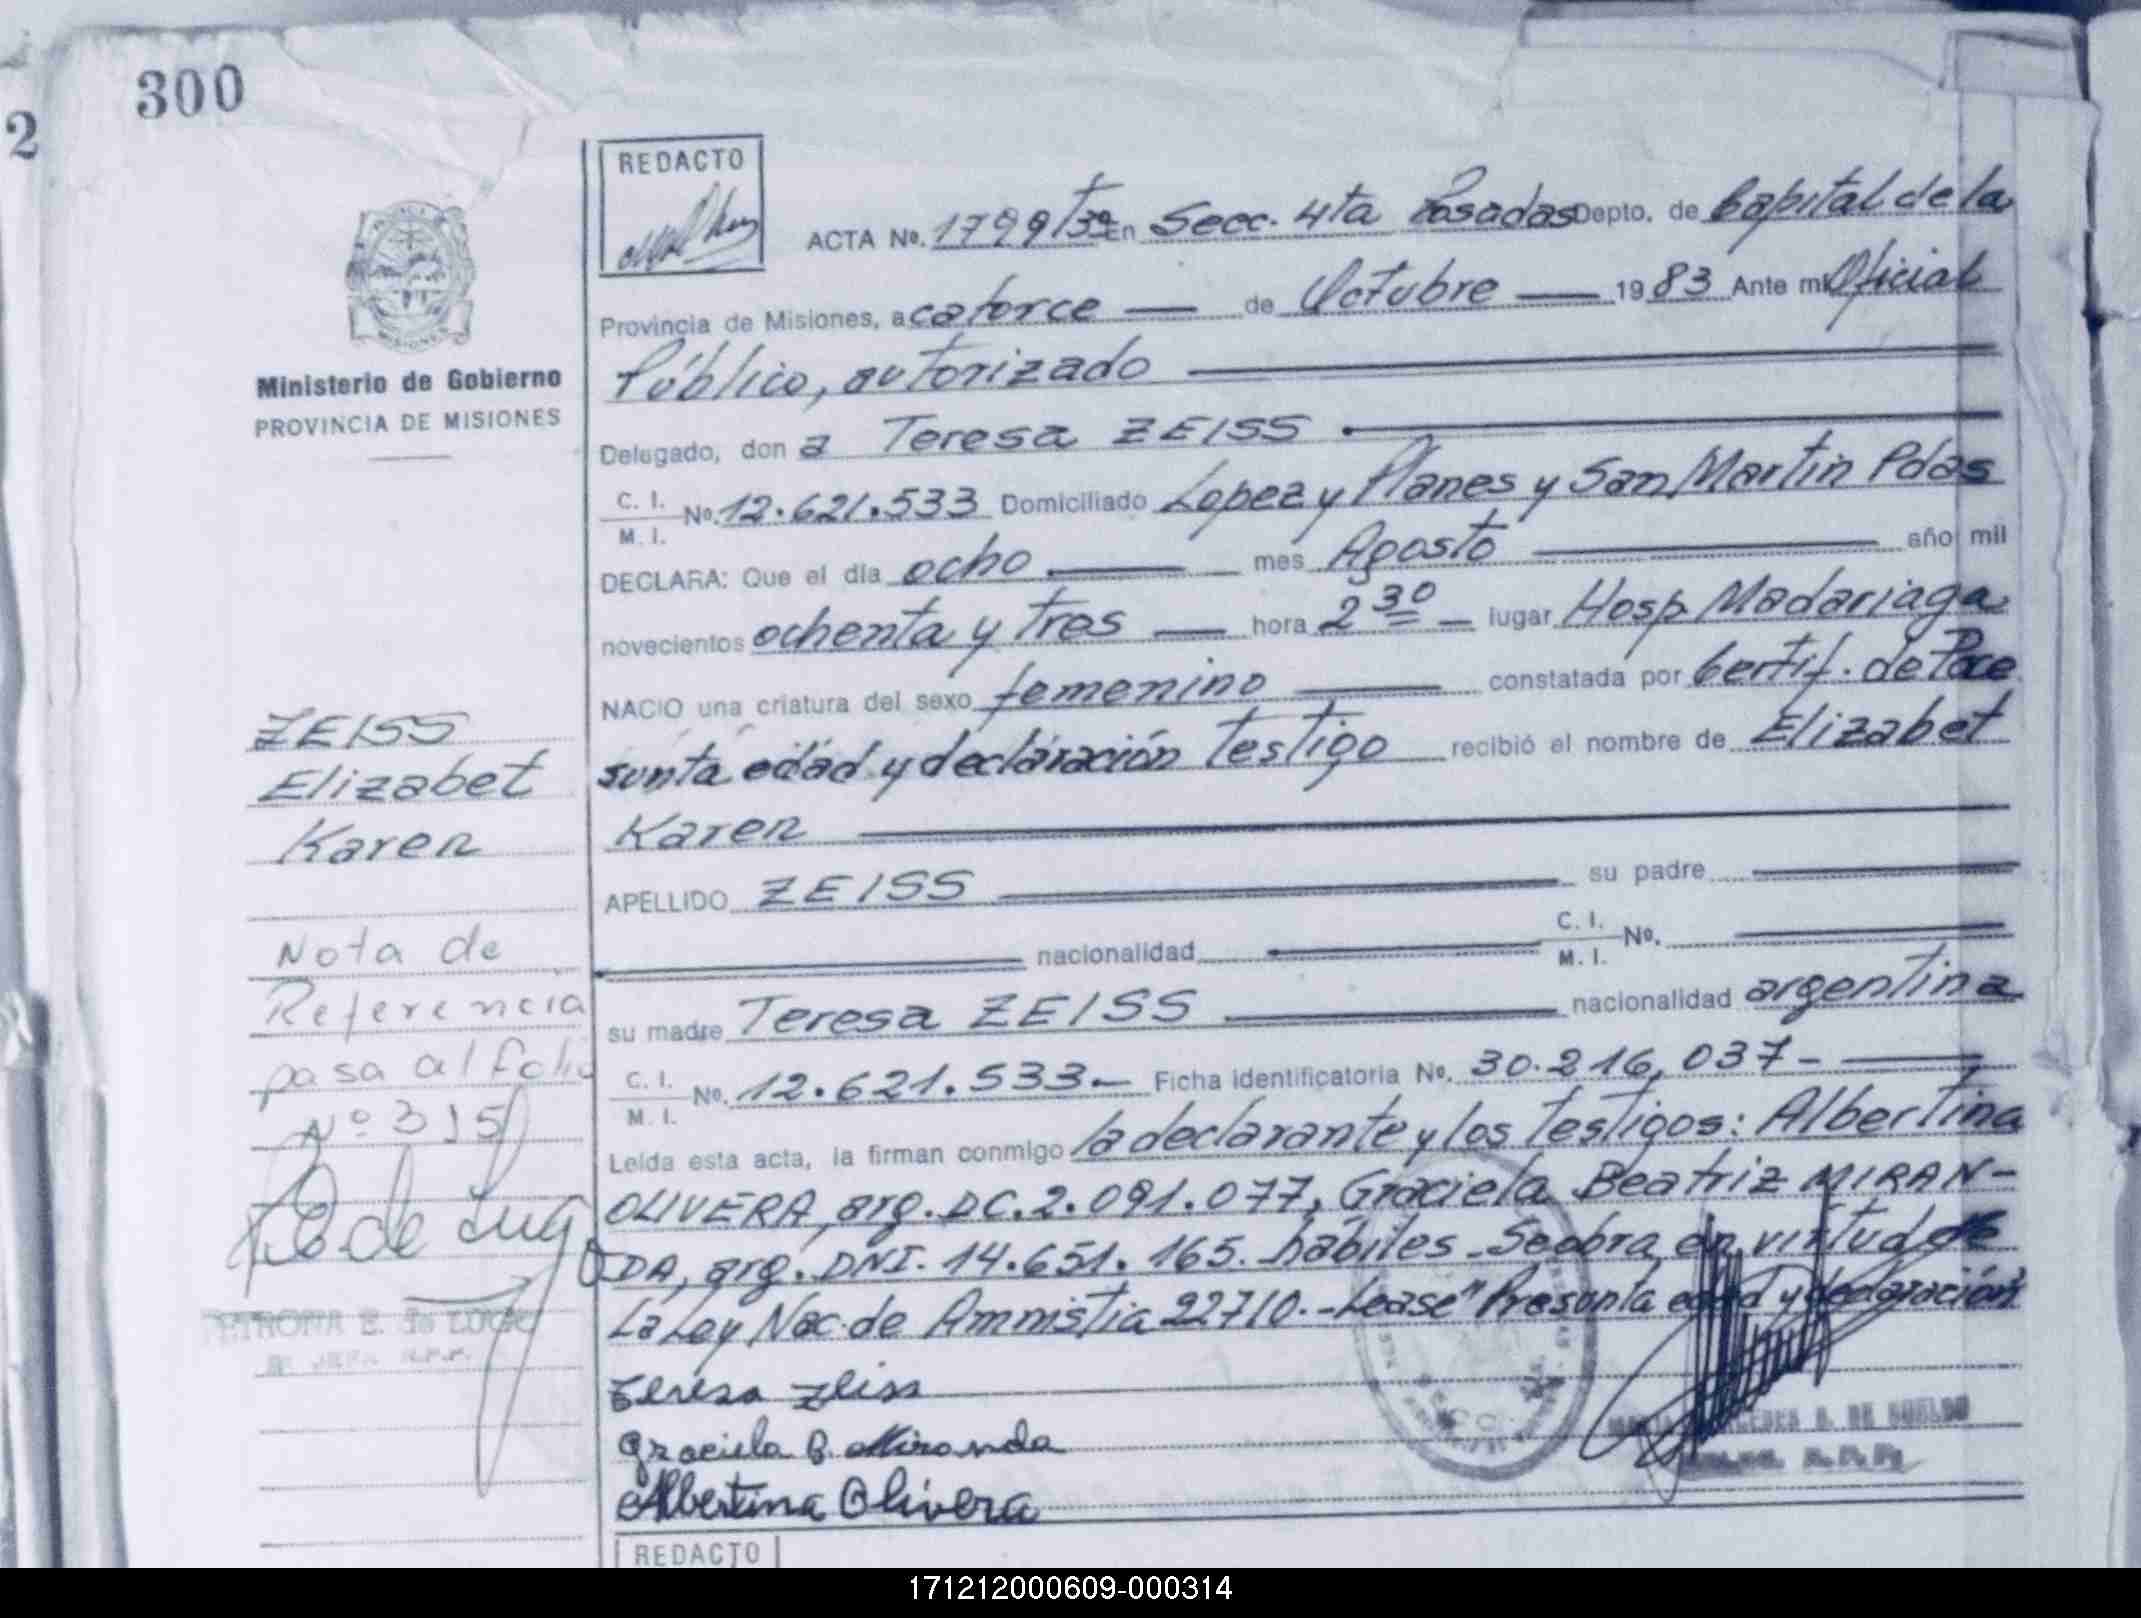 300
2
REDACTO
ACTA No. 1799 Tº 3º En Secc. 4ta Posadas Depto. de Capital de la
Provincia de Misiones, a catorce de Octubre 1983 Ante mi Oficial
Público, autorizado
Ministerio de Gobierno
PROVINCIA DE MISIONES
Delegado, don a Teresa ZEISS
C. I. M. I. No. 12.621.533 Domiciliado Lopez y Planes y San Martin Pdas
DECLARA: Que el día ocho mes Agosto año mil
novecientos ochenta y tres hora 2 30 lugar Hosp. Madariaga
NACIO una criatura del sexo femenino constatada por Certif. de Pre
sunta edad y declaración testigo recibió el nombre de Elizabet
Karen
APELLIDO ZEISS su padre
nacionalidad C. I. M. I. No.
su madre Teresa ZEISS nacionalidad argentina
C. I. M. I. No. 12.621.533.- Ficha identificatoria No. 30.216,037-
Leída esta acta, la firman conmigo la declarante y los testigos: Albertina
OLIVERA, arg. DC. 2.091.077, Graciela Beatriz MIRAN-
DA, arg. DNI. 14.651.165. hábiles. Se obra en virtud de
La Ley Nac. de Amnistia 22710.-Lease "Presunta edad y declaración"
Teresa Zeiss
Graciela B. Miranda
Albertina Olivera
ZEISS
Elizabet
Karen
Nota de
Referencia
pasa al folio
Nº 315
REDACTO
171212000609-000314